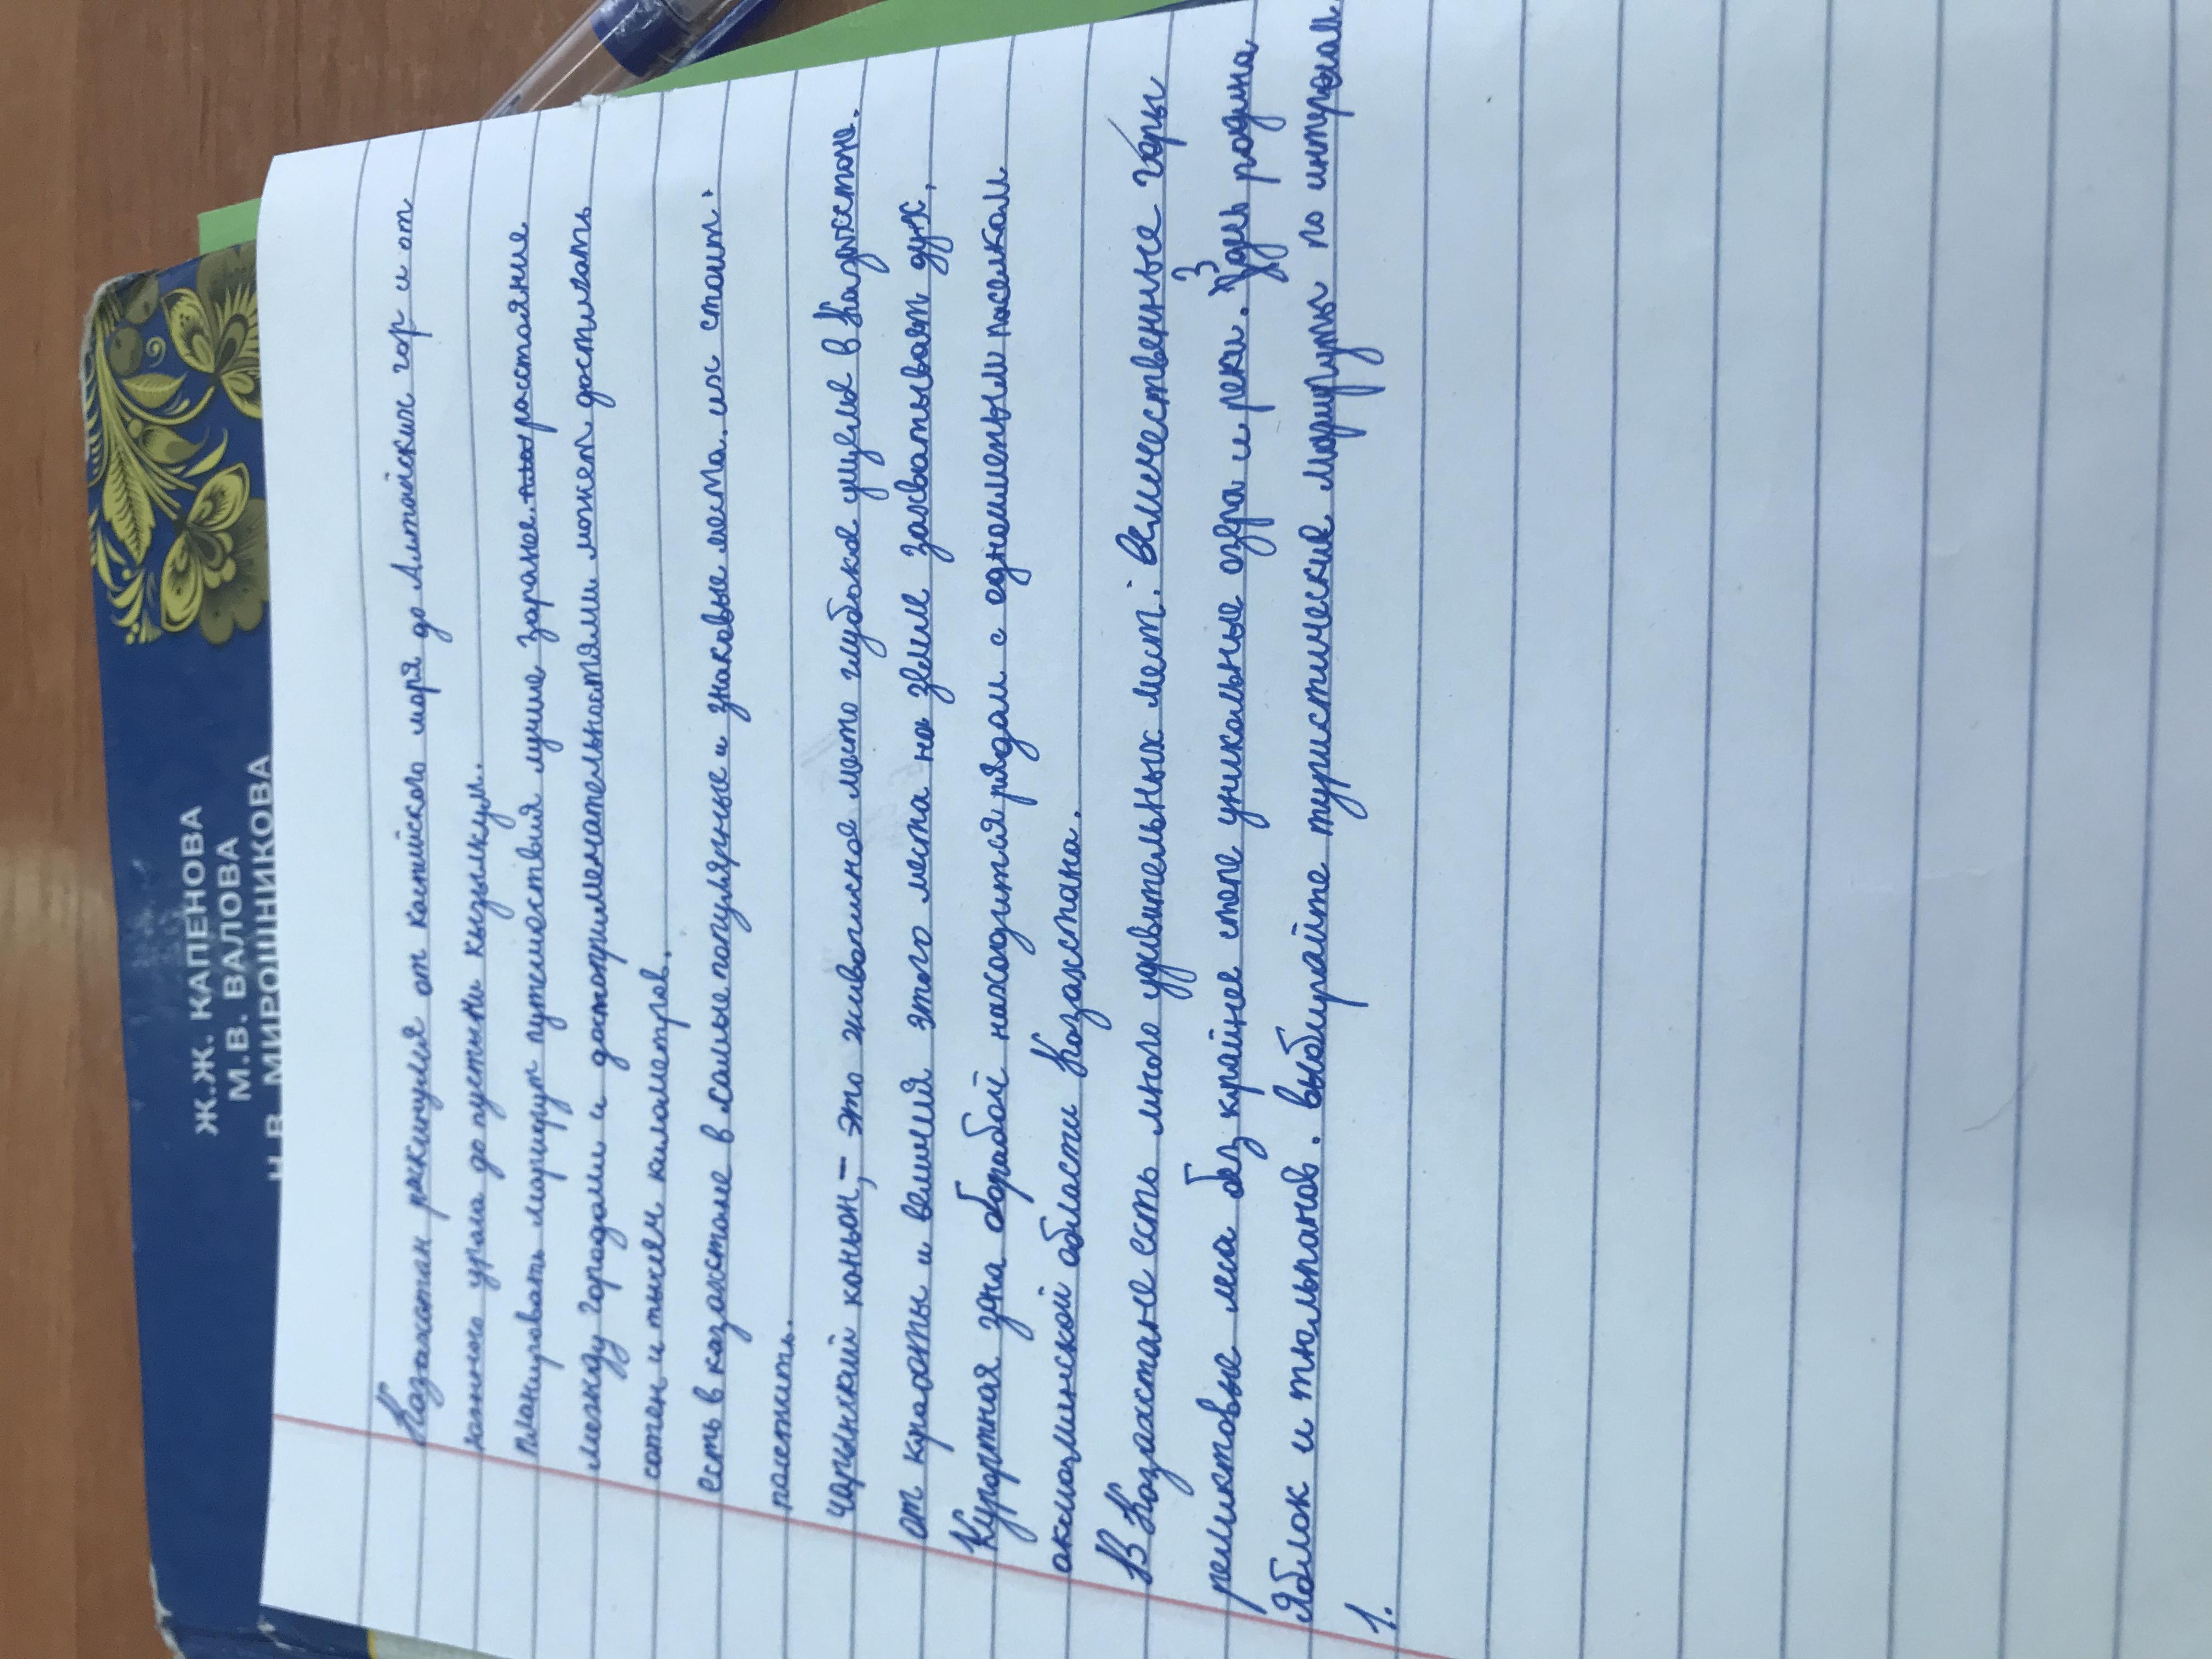 Ж.Ж. КАПЕНОВА
М.В. ВАЛОВА
Н.В. МИРОШНИКОВА
Казахстан раскинулся от каспийского моря до Алтайских гор и от
южного урала до пустыни кизылкум.
планировать маршрут путешествия лучше заранее. расстояние
между городами и достопримечательностями может достигать
сотен и тысяч километров.
есть в казахстане в самые популярные и знаковые места. их стоит
посетить.
Чарынский коньон, - это живописное место глубокое ущелье в Казахстане.
от красоты и величия этого места на земле захватывает дух.
Курортная зона оборабой находится рядом с одноименым поселком
акмолинской области Казахстана.
В Казахстане есть много удивительных мест: величественные горы
реликтовые леса без крайнее степе уникальные озёра и реки. Здесь родина
Яблок и тюльпанов. выбирайте туристические маршруты по интересам
1.